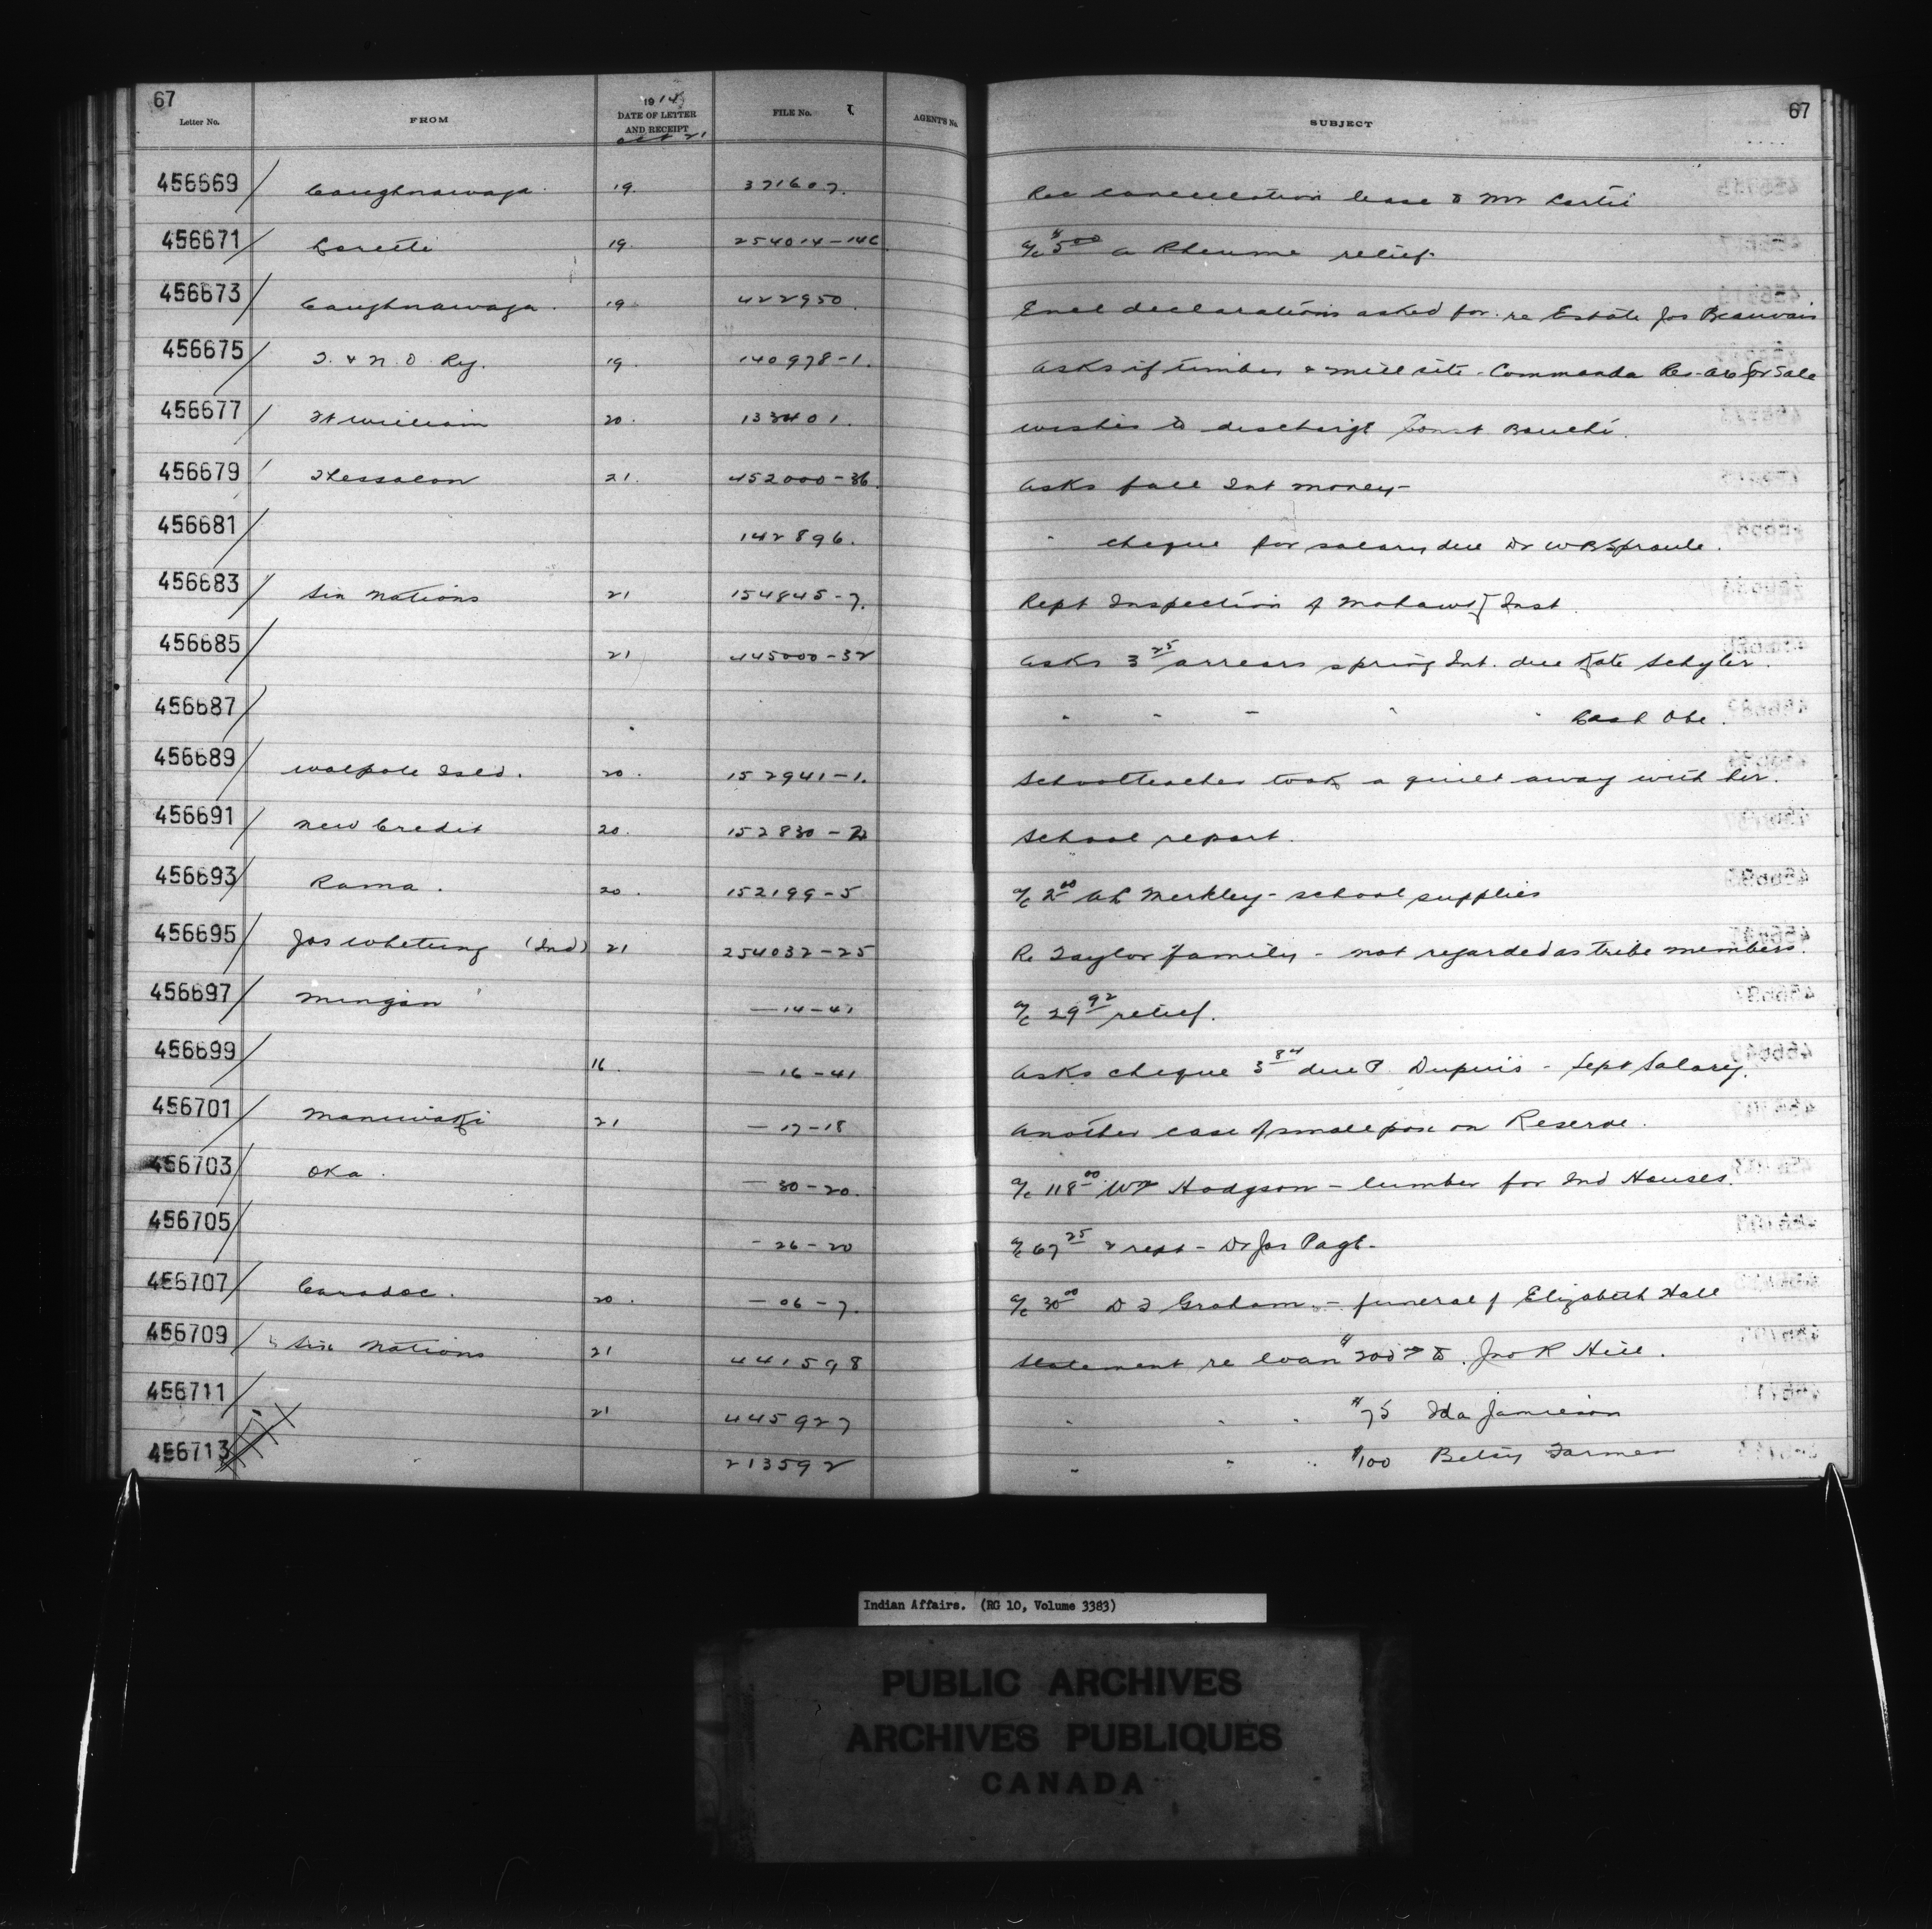 67
67
Letter No. FROM 1914 DATE OF LETTER AND RECEIPT Oct 21 FILE No. AGENT'S No. SUBJECT
456669 Caughnawaga 19. 371607. Rec cancellation lease to Mr
456671 Lorette 19. 254014-14C a/c $5 00 A Rheume relief-
456673 Caughnawaga. 19 422950. Encl declarations asked for re Estate Jos Beauvais
456675 T. & N. O. Ry. 19. 140978-1. Asks if timber & mill site - Commanda Res. are for Sale
456677 Ft William 20. 133401. Wishes to discharge Const
456679 Thessalon 21. 452000-36. Asks fall Int money-
456681 142896. " cheque for salary due Dr W B Sproule.
456683 Six Nations 21 154845-7. Rept Inspection of Mohawk Inst.
456685 21 445000-32 Asks 3 25 arrears spring Int. due Kate Schyler.
456687 " " " " " Obe.
456689 Walpole Isld. 20. 152941-1. Schoolteacher took a quilt away with her.
456691 New Credit 20. 152830- School report.
456693 Rama. 20. 152199-5 a/c 2 00 Merkley - school supplies
456695 Jas Whetung (Ind) 21 254032-25 Re Taylor family - not regarded as tribe members.
456697 Mingan -14-41 a/c 29 92 relief.
456699 16. -16-41 Asks cheque 3 84 due P. Dupuis - Sept Salary.
456701 Maniwaki 21 -17-18 Another case of smallpox on Reserve.
456703 Oka. -30-20. a/c 118 00 Wm Hodgson - lumber for Ind Houses.
456705 -26-20 a/c 67 25 & rept - Dr Jos Page-
456707 Caradoc. 20. -06-7. a/c 30 00 D J Graham - funeral of Elizabeth Hall
456709 Six Nations 21 441598 Statement re loan $200 to Jno R Hill.
456711 21 445927 " " " $75 Ida Jamieson
456713 213592 " " " $100 Betsy Farmer
Indian Affairs. (RG 10, Volume 3383)
PUBLIC ARCHIVES
ARCHIVES PUBLIQUES
CANADA